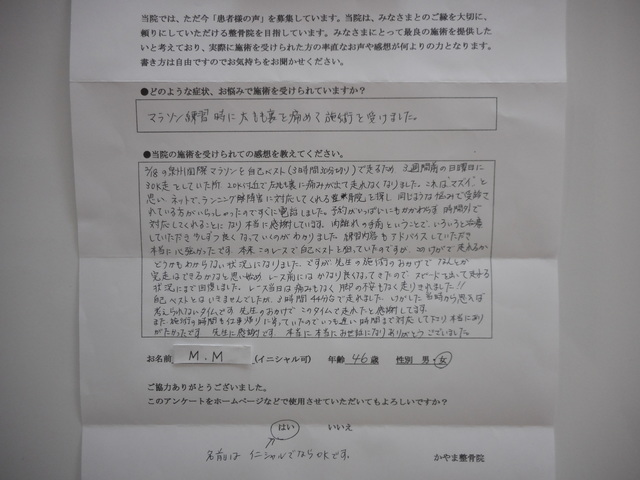 当院では、ただ今「患者様の声」を募集しています。当院は、みなさまとのご縁を大切に、
頼りにしていただける整骨院を目指しています。みなさまにとって最良の施術を提供した
いと考えており、実際に施術を受けられた方の率直なお声や感想が何よりの力となります。
書き方は自由ですのでお気持ちをお聞かせください。
●どのような症状、お悩みで施術を受けられていますか？
マラソン練習時に太もも裏を痛めて施術を受けました。
●当院の施術を受けられての感想を教えてください。
2/18の泉州国際マラソンを自己ベスト(3時間30分切り)で走るため 3週間前の日曜日に
30K走をしていた所 20K以上で太もも裏に痛みが出て走れなくなりました。これは"マズイ"と
思い ネットで、ランニング障害に対応してくれる整骨院を探し 同じような悩みで受診さ
れている方がいらっしゃったのですぐに電話しました。予約がいっぱいにもかかわらず 時間外で
対応してくれることになり本当に感謝しています。肉離れの手前ということで、いろいろと治療
していただき 少しずつ良くなっていくのがわかりました 練習内容も アドバイスしていただき
本当に心強かったです。本来 このレースで自己ベストを狙っていたのですが このけがで走れるか
どうかもわからない 状況になりました。ですが 先生の施術のおかげで なんとか
完走はできるかなと思い始め レース前には かなり良くなってきたので スピードを出して走れる
状況にまで回復しました。レース当日は 痛みもなく 脚の不安もなく走りきれました!!
自己ベストとは いきませんでしたが、3時間44分台で走れました。けがした当時から思えば
考えられないタイムです 先生のおかげで このタイムで走れたと感謝してます。
また 施術の時間も仕事帰りに寄っていたので いつも遅い時間まで対応して下さり 本当にあり
がたかったです 先生に感謝です 本当に 本当に お世話になり ありがとうございました。
お名前 M.M (イニシャル可) 年齢 46 歳 性別 男・女
ご協力ありがとうございました。
このアンケートをホームページなどで使用させていただいてもよろしいですか？
はい いいえ
名前は イニシャルでならOKです。
かやま整骨院